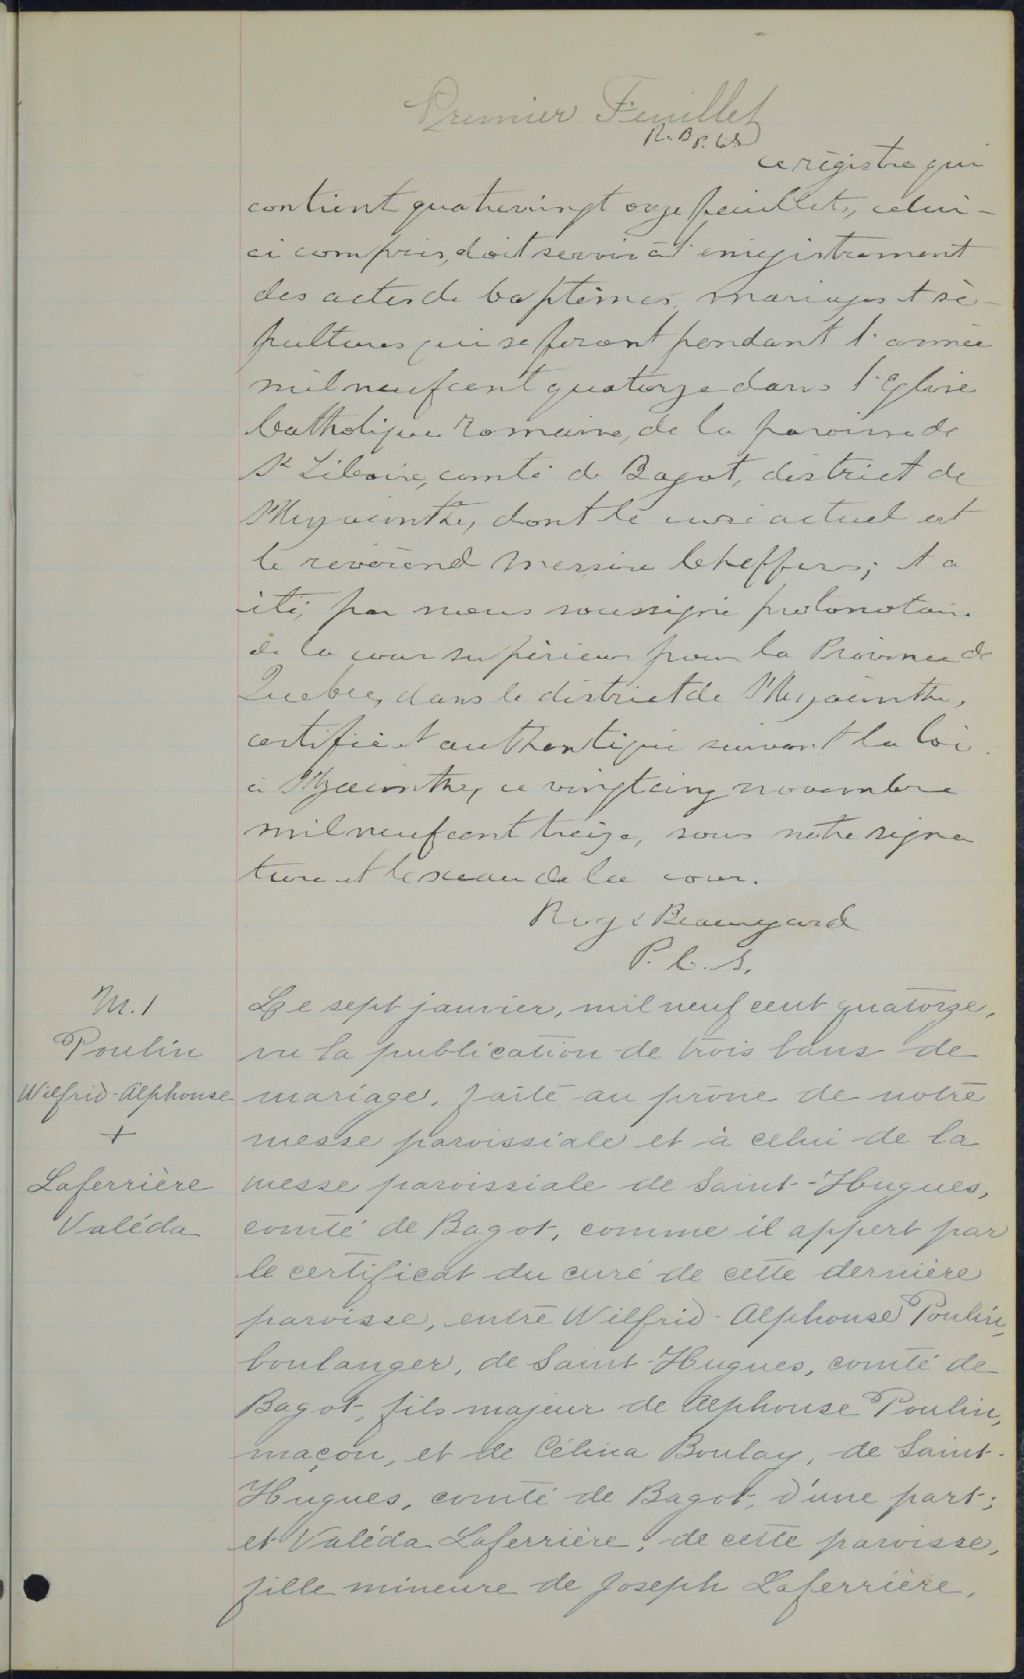 Premier Feuillet
R. B P.C.S
ce régistre qui
contient quatrevingt onze feuillets, celui-
ci compris, doit servir à l'enregistrement
des actes de baptêmes, mariages et sé-
pultures qui se feront pendant l'année
mil neuf cent quatorze dans l'Eglise
Catholique Romaine, de la paroisse de
St Liboire, comté de Bagot, district de
St Hyacinthe, dont le curé actuel est
le révérend Messire ; et a
été, par nous soussigné protonotaire
de la cour supérieure pour la Province de
Québec, dans le district de St Hyacinthe,
certifié et authentiqué suivant la loi.
à St Hyacinthe, ce vingtcinq novembre
mil neuf cent treize, sous notre signa
ture et le sceau de la cour.
Roy & Beauregard
P. C. S.
M. 1
Poulin
Wilfrid-Alphonse
+
Laferrière
Valéda
Le sept janvier, mil neuf cent quatorze,
vu la publication de trois bans de
mariage, faite au prône de notre
messe paroissiale et à celui de la
messe paroissiale de Saint-Hugues,
comté de Bagot, comme il appert par
le certificat du curé de cette dernière
paroisse, entre Wilfrid-Alphonse Poulin,
boulanger, de Saint-Hugues, comté de
Bagot, fils majeur de Alphonse Poulin,
maçon, et de Célina Boulay, de Saint-
Hugues, comté de Bagot, d'une part;
et Valéda Laferrière, de cette paroisse,
fille mineure de Joseph Laferrière,